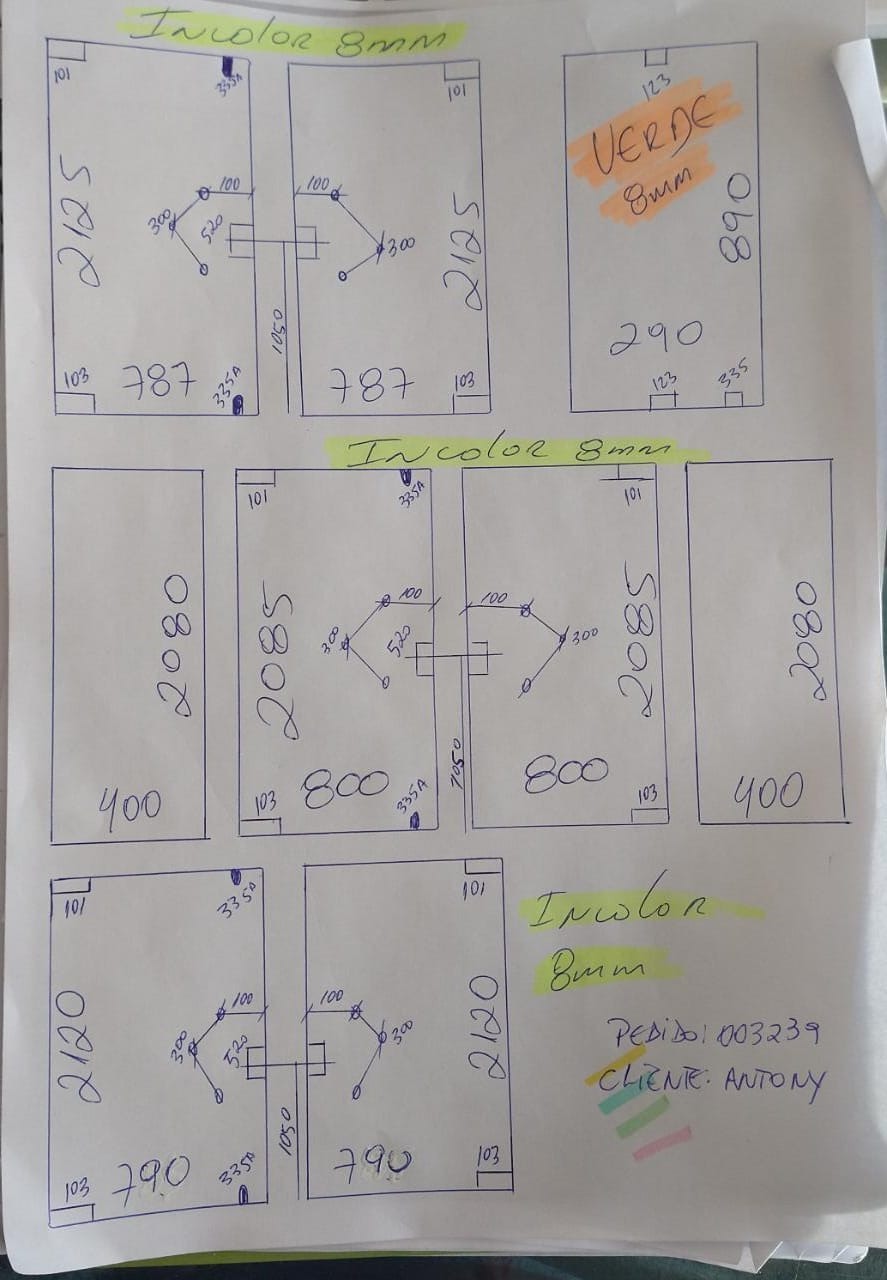 INCOLOR 8mm
101
335A
101
123
VERDE
8mm
2125
100
300
520
100
300
2125
890
1050
290
103
787
335A
787
103
123
335
INCOLOR 8mm
101
335A
101
2080
2085
100
300
520
100
300
2085
2080
400
103
800
335A
1050
800
103
400
101
335A
101
INCOLOR
8mm
2120
100
300
520
100
300
2120
PEDIDO: 003239
CLIENTE: ANTONY
103
790
335A
1050
790
103